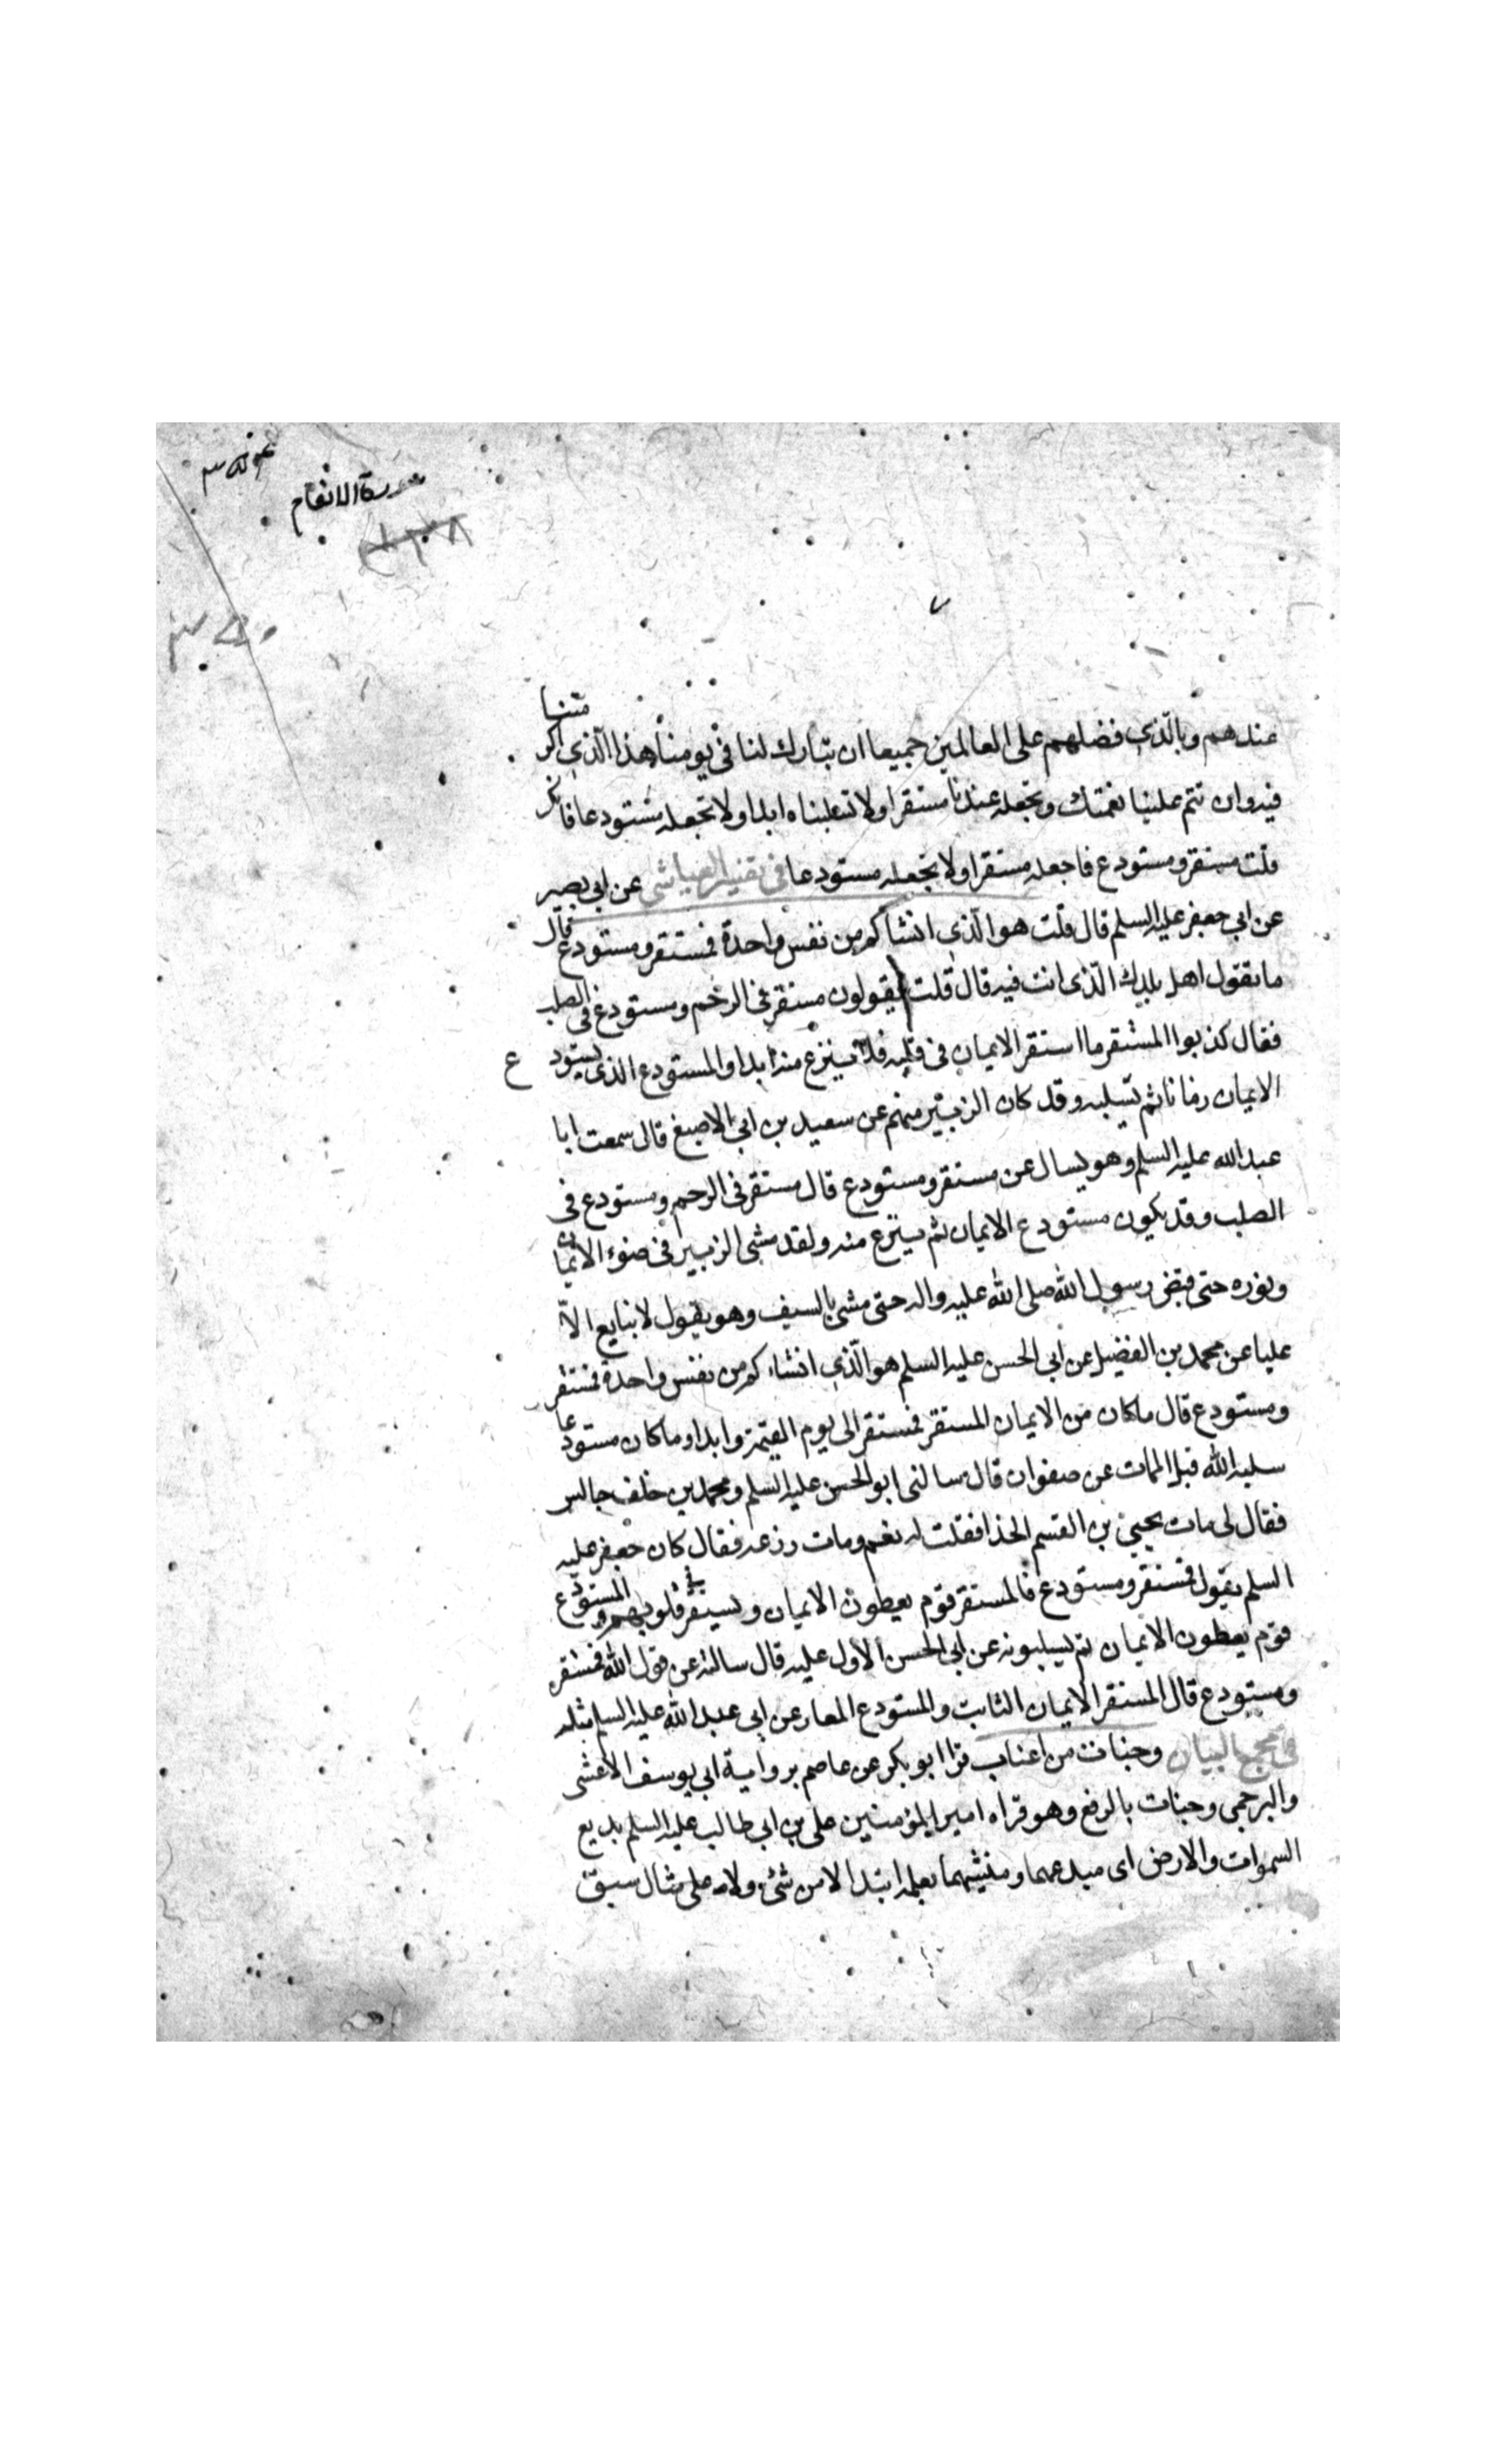 سورة الانعام
عندهم وبالّذي فضلهم على العالمين جميعا ان تبارك لنا في يومنا هذا الّذي اكرمتنا
فيه وان تتم علينا نعمتك وتجعله عندنا مستقرا ولا تسلبناه ابدا ولا تجعله مستودعا فانك
قلت مستقر ومستودع فاجعله مستقرا ولا تجعله مستودعا في تفسير العياشي عن ابي بصير
عن ابي جعفر عليه السلم قال قلت هو الّذى انشاكم من نفس واحدة فمستقر ومستودع قال
ما يقول اهل بلدك الّذى انت فيه قال قلت يقولون مستقر في الرحم ومستودع في الصلب
فقال كذبوا المستقر ما استقر الايمان في قلبه فلا ينزع منه ابدا والمستودع الذى يستودع
الايمان زمانا ثم يسلبه وقد كان الزبير منهم عن سعيد بن ابي الاصبغ قال سمعت ابا
عبد الله عليه السلم وهو يسال عن مستقر ومستودع قال مستقر في الرحم ومستودع في
الصلب وقد يكون مستودع الايمان ثم ينزع منه ولقد مشى الزبير في ضوء الايمان
ونوره حتى قبض رسول الله صلى الله عليه واله حتى مشى بالسيف وهو يقول لا نبايع الاّ
عليا عن محمد بن الفضيل عن ابي الحسن عليه السلم هو الّذي انشاءكم من نفس واحدة فمستقر
ومستودع قال ما كان من الايمان المستقر فمستقر الى يوم القيمة وابدا وما كان مستودعا
سلبه الله قبل الممات عن صفوان قال سالنى ابو الحسن عليه السلم ومحمد بن خلف جالس
فقال لى مات يحيى بن القسم الحذا فقلت له نعم ومات زرعه فقال كان جعفر عليه
السلم يقول فمستقر ومستودع فالمستقر قوم يعطون الايمان ويستقر في قلوبهم والمستودع
قوم يعطون الايمان ثم يسلبونه عن ابي الحسن الاول عليه قال سالته عن قول الله فمستقر
ومستودع قال المستقر الايمان الثابت والمستودع المعار عن ابي عبد الله عليه السلم مثله
في مجمع البيان وجنات من اعناب قرا ابو بكر عن عاصم برواية ابي يوسف الاعشى
والبرجمي وجنات بالرفع وهو قراه امير المؤمنين على بن ابي طالب عليه السلم بديع
السموات والارض اى مبدعهما ومنشيهما بعلمه ابتدا لا من شئ ولا على مثال سبق